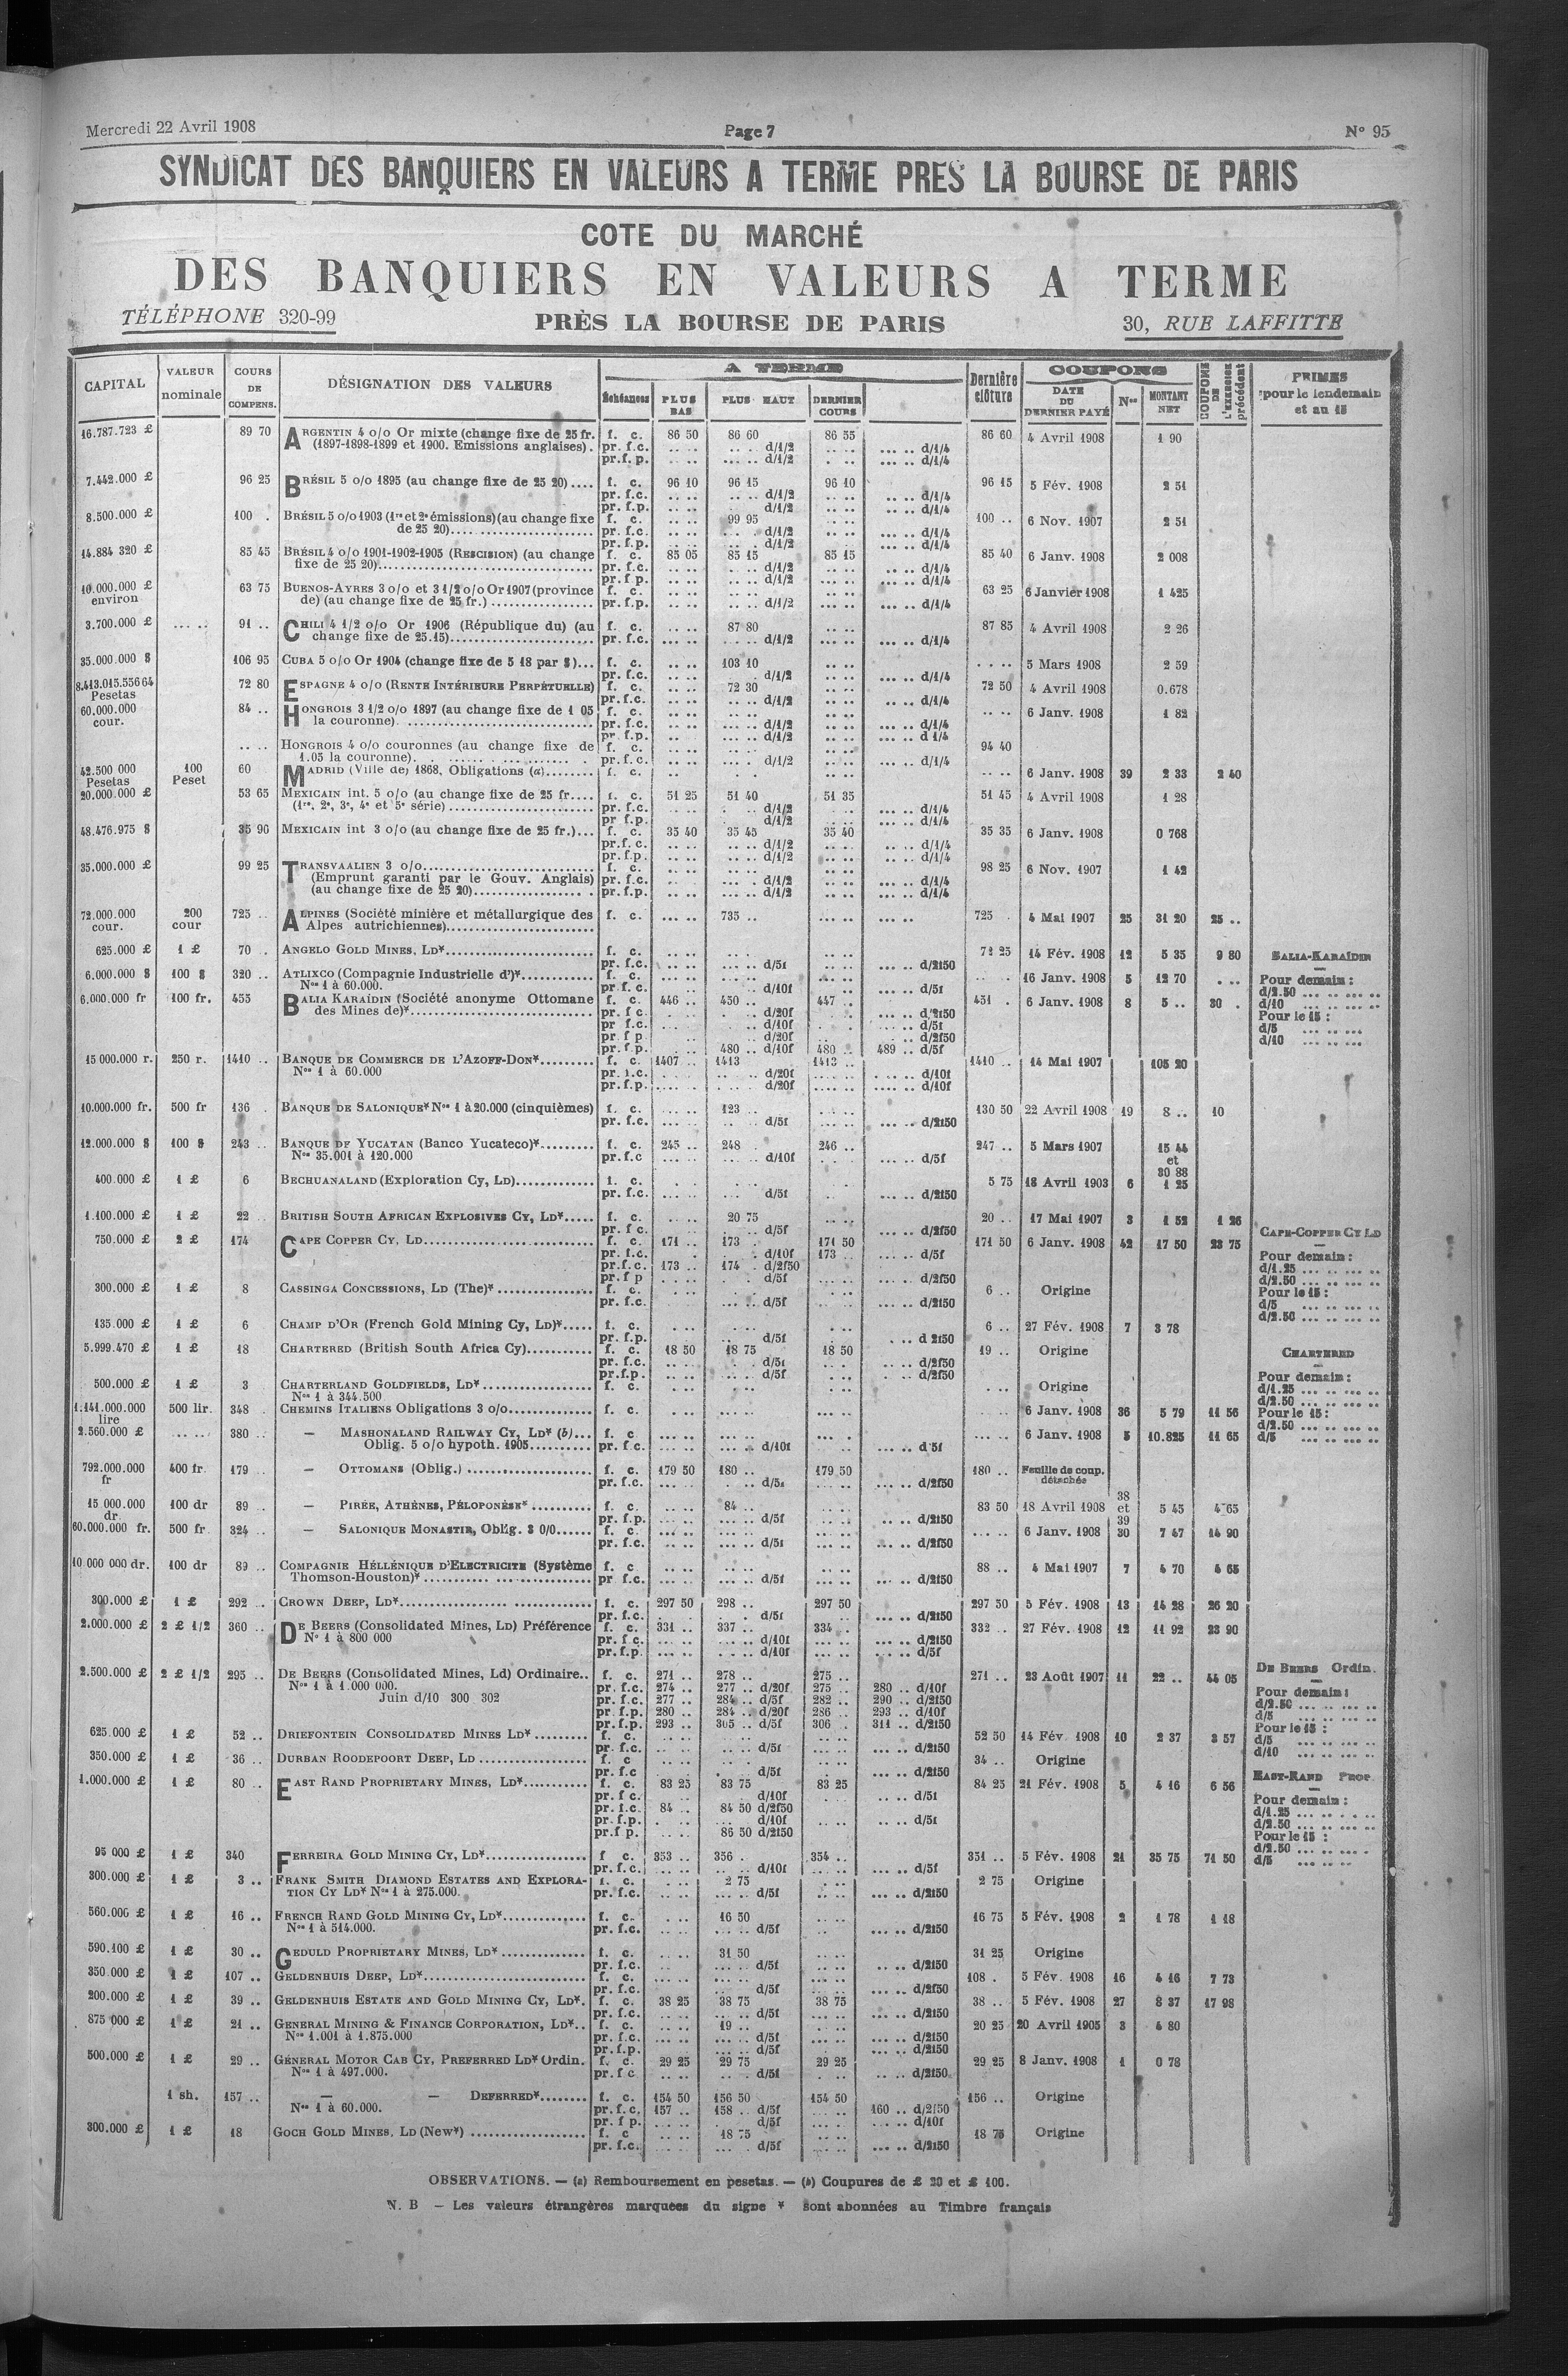 Mercredi 22 Avril 1908 Page 7 N° 95
SYNDICAT DES BANQUIERS EN VALEURS A TERME PRES LA BOURSE DE PARIS
COTE DU MARCHÉ
DES BANQUIERS EN VALEURS A TERME
TÉLÉPHONE 320-99 PRÈS LA BOURSE DE PARIS 30, RUE LAFFITTE
CAPITAL VALEUR nominale COURS DE COMPENS. DÉSIGNATION DES VALEURS A TERME Échéances PLUS BAS PLUS HAUT DERNIER COURS Dernière clôture COUPONS DATE DU DERNIER PAYÉ Nos MONTANT NET COUPONS DE L'EXERCICE précédent PRIMES pour le lendemain et au 15
16.787.723 £ 89 70 ARGENTIN 4 o/o Or mixte (change fixe de 25 fr. f. c. 86 50 86 60 86 55 86 60 4 Avril 1908 1 90
(1897-1898-1899 et 1900. Emissions anglaises). pr. f.c. .. .. .. .. d/1/2 .. .. ... .. d/1/4
pr.f.p. .. .. ... .. d/1/2 . .. ... .. d/1/4
7.442.000 £ 96 25 BRÉSIL 5 o/o 1895 (au change fixe de 25 20).... f. c. 96 10 96 15 96 10 96 15 5 Fév. 1908 2 51
pr. f.c. .. .. .. .. d/1/2 .. .. .. .. d/1/4
pr. f.p. .. .. d/1/2 .. .. .. .. d/1/4
8.500.000 £ 100 . BRÉSIL 5 o/o 1903 (1re et 2e émissions)(au change fixe f. c. .. .. 99 95 .. .. 100 .. 6 Nov. 1907 2 51
de 25 20)........ pr. f.c. .. .. .. .. d/1/2 .. .. ... .. d/1/4
pr. f.p. .. .. d/1/2 .. .. ... .. d/1/4
14.884 320 £ 85 45 BRÉSIL 4 o/o 1901-1902-1905 (RESCISION) (au change f. c. 85 05 85 15 85 15 85 40 6 Janv. 1908 2 008
fixe de 25 20)........ pr. f.c. .. .. .. .. d/1/2 .. .. ... .. d/1/4
pr. f p. .. .. .. .. d/1/2 .. .. ... .. d/1/4
10.000.000 £ 63 75 BUENOS-AYRES 3 o/o et 3 1/2 o/o Or 1907 (province f. c. 63 25 6 Janvier 1908 1 425
environ de) (au change fixe de 25 fr.) ........ pr. f.p. .. .. .. .. d/1/2 ... .. ... .. d/1/4
3.700.000 £ ... .. 91 .. CHILI 4 1/2 o/o Or 1906 (République du) (au f. c. .. .. 87 80 .. .. 87 85 4 Avril 1908 2 26
change fixe de 25.15)........ pr. f.c. ... .. d/1/2 ... .. ... .. d/1/4
35.000.000 $ 106 95 CUBA 5 o/o Or 1904 (change fixe de 5 18 par $)... f. c. .. .. 103 10 .. .. .. .. 5 Mars 1908 2 59
pr. f.c. .. .. d/1/2 .. .. ... .. d/1/4
8.413.015.556 64 72 80 ESPAGNE 4 o/o (RENTE INTÉRIEURE PERPÉTUELLE) f. c. .. .. 72 30 .. .. 72 50 4 Avril 1908 0.678
Pesetas pr. f.c. .. .. .. .. d/1/2 .. .. .. .. d/1/4
60.000.000 84 .. HONGROIS 3 1/2 o/o 1897 (au change fixe de 1 05 f. c. .. .. .. .. 6 Janv. 1908 1 82
cour. la couronne). ........ pr. f.c. .. .. ... .. d/1/2 .. .. ... .. d/1/4
pr. f.p. .. .. ... .. d/1/2 .. .. ... .. d 1/4
.. .. HONGROIS 4 o/o couronnes (au change fixe de f. c. .. .. .. .. 94 40
1.05 la couronne). ........ pr. f.c. .. .. d/1/2 .. .. ... .. d/1/4
42.500 000 100 60 MADRID (Ville de) 1868, Obligations (a)........ f. c. .. . . .. .. .. 6 Janv. 1908 39 2 33 2 40
Pesetas Peset
20.000.000 £ 53 65 MEXICAIN int. 5 o/o (au change fixe de 25 fr.... f. c. 51 25 51 40 51 35 51 45 4 Avril 1908 1 28
(1re, 2e, 3e, 4e et 5e série) ........ pr. f.c. .. .. d/1/2 .. .. ... .. d/1/4
pr f.p. .. .. d/1/2 .. .. ... .. d/1/4
48.476.975 $ 35 90 MEXICAIN int 3 o/o (au change fixe de 25 fr.)... f. c. 35 40 35 45 35 40 35 35 6 Janv. 1908 0 768
pr.f. c. .. .. .. .. d/1/2 .. .. .. .. d/1/4
pr. f.p. .. .. .. .. d/1/2 .. .. .. .. d/1/4
35.000.000 £ 99 25 TRANSVAALIEN 3 o/o........ f. c. .. .. .. .. 98 25 6 Nov. 1907 1 42
(Emprunt garanti par le Gouv. Anglais) pr. f.c. .. .. ... .. d/1/2 .. .. ... .. d/1/4
(au change fixe de 25 20)........ pr. f.p. .. .. ... .. d/1/2 .. .. ... .. d/1/4
72.000.000 200 725 .. ALPINES (Société minière et métallurgique des f. c. ... .. 735 .. ... .. ... .. 725 . 4 Mai 1907 25 31 20 25 ..
cour. cour Alpes autrichiennes)........
625.000 £ 1 £ 70 . ANGELO GOLD MINES, LD*........ f. c. .. .. .. .. 72 25 14 Fév. 1908 12 5 35 9 80 BALIA-KARAÏDIN
pr. f.c. .. .. ... .. d/5f .. .. d/2f50
6.000.000 $ 100 $ 320 .. ATLIXCO (Compagnie Industrielle d')*........ f. c. .. .. .. .. .. . 16 Janv. 1908 5 12 70 . .. Pour demain :
Nos 1 à 60.000. pr. f. c. .. .. d/10f .. .. ... .. d/5f d/2.50 ... .. .. ... ..
6.000.000 fr 100 fr. 455 BALIA KARAÏDIN (Société anonyme Ottomane f. c. 446 .. 450 .. 447 .. 451 . 6 Janv. 1908 8 5 .. 30 . d/10 ... .. .. ... ..
des Mines de)*........ pr. f c. . .. . .. d/20f .. .. ... .. d/2f50 Pour le 15 :
pr f.c. .. .. . .. d/10f . . ... .. d/5f d/5 ... .. ...
pr. f p . .. . .. d/20f .. .. ... .. d/2f50 d/10 ... .. ...
pr. f.p. .. .. 480 .. d/10f 480 .. 489 .. d/5f
15 000.000 r. 250 r. 1410 .. BANQUE DE COMMERCE DE L'AZOFF-DON*........ f. c. 1407 .. 1413 1413 .. 1410 .. 14 Mai 1907 105 20
Nos 1 à 60.000 pr. f.c. .. .. .. .. d/20f .. .. ... .. d/10f
pr. f.p. ... .. .. .. d/20f ... .. ... .. d/10f
10.000.000 fr. 500 fr 136 . BANQUE DE SALONIQUE* Nos 1 à 20.000 (cinquièmes) f. c. .. .. 123 .. ... .. 130 50 22 Avril 1908 19 8 .. 10
pr. f.c. ... .. .. .. d/5f ... .. ... .. d/2f50
12.000.000 $ 100 $ 243 .. BANQUE DE YUCATAN (Banco Yucateco)*........ f. c. 245 .. 248 . 246 .. 247 .. 5 Mars 1907 15 44
Nos 35.001 à 120.000 pr. f.c ... .. ... .. d/10f . .. ... .. d/5f et
30 88
400.000 £ 1 £ 6 BECHUANALAND (Exploration Cy, LD)........ f. c. .. .. .. .. 5 75 18 Avril 1903 6 1 25
pr. f.c. ... .. d/5f .. ... .. d/2f50
1.100.000 £ 1 £ 22 .. BRITISH SOUTH AFRICAN EXPLOSIVES CY, LD*..... f. c. .. .. 20 75 .. .. 20 .. 17 Mai 1907 3 1 52 1 26
pr. f c. .. .. . .. d/5f .. .. ... .. d/2f50 CAPE-COPPER CY LD
750.000 £ 2 £ 174 CAPE COPPER CY, LD........ f. c. 171 .. 173 . 171 50 171 50 6 Janv. 1908 42 17 50 23 75
pr. f.c. . . d/10f 173 .. ... .. d/5f Pour demain :
pr.f.c. 173 .. 174 . d/2f50 d/1.25 ... .. .. ... ..
pr. f p .. .. d/5f ... .. d/2f50 d/2.50 ... .. .. ... ..
300.000 £ 1 £ 8 CASSINGA CONCESSIONS, LD (The)* ........ f. c. .. .. .. .. 6 .. Origine Pour le 15 :
pr. f.c. .. .. ... .. d/5f .. .. ... .. d/2f50 d/5 ... .. .. ... ..
d/2.50 ... .. .. ... ..
135.000 £ 1 £ 6 CHAMP D'OR (French Gold Mining Cy, LD)*..... f. c. . .. ... .. . .. 6 .. 27 Fév. 1908 7 3 78
pr. f.p. .. .. ... .. d/5f .. .. .. d 2f50
5.999.470 £ 1 £ 18 CHARTERED (British South Africa Cy)........ f. c. 18 50 18 75 18 50 19 .. Origine CHARTERED
pr. f.c. .. .. .. . d/5f .. .. .. .. d/2f50
pr.f.p. .. .. .. . d/5f .. .. .. .. d/2f50 Pour demain :
500.000 £ 1 £ 3 CHARTERLAND GOLDFIELDS, LD*........ f. c. . .. .. .. ... .. . .. Origine d/1.25 ... .. .. ... ..
Nos 1 à 344.500 d/2.50 ... .. .. ... ..
1.141.000.000 500 lir. 348 . CHEMINS ITALIENS Obligations 3 o/o........ f. c. ... .. ... .. ... .. .. .. 6 Janv. 1908 36 5 79 11 56 Pour le 15 :
lire d/2.50 ... .. .. ... ..
2.560.000 £ ... .. 380 .. — MASHONALAND RAILWAY CY, LD* (b)... f. c ... .. ... .. ... . ... .. 6 Janv. 1908 5 10.825 11 65 d/5 ... .. .. ... ..
Oblig. 5 o/o hypoth. 1905........ pr. f c. ... .. ... .. d/10f .. .. ... .. d 5f
792.000.000 400 fr. 179 — OTTOMANS (Oblig.) ........ f. c. 179 50 180 .. 179 50 180 .. Feuille de coup.
fr pr. f.c. ... .. . .. d/5f .. .. d/2f50 détachée
15 000.000 100 dr 89 .. — PIRÉE, ATHÈNES, PÉLOPONÈSE* ........ f. c. .. .. 84 .. .. .. 83 50 18 Avril 1908 38 et 39 5 45 4 65
dr. pr. f.p. .. .. ... .. d/5f .. .. ... .. d/2f50
60.000.000 fr. 500 fr. 324 .. — SALONIQUE MONASTIR, Oblig. 3 0/0...... f. c. ... .. ... .. ... .. ... .. 6 Janv. 1908 30 7 47 14 90
pr. f.c. ... .. ... .. d/5f ... .. ... .. d/2f50
10 000 000 dr. 100 dr 89 .. COMPAGNIE HÉLLÉNIQUE D'ELECTRICITÉ (Système f. c .. .. .. .. .. .. 88 .. 4 Mai 1907 7 4 70 4 65
Thomson-Houston)* ........ pr f.c. .. .. ... .. d/5f .. .. ... .. d/2f50
300.000 £ 1 £ 292 .. CROWN DEEP, LD*........ f. c. 297 50 298 .. 297 50 297 50 5 Fév. 1908 13 14 28 26 20
pr. f.c. .. . .. . d/5f .. .. ... .. d/2f50
2.000.000 £ 2 £ 1/2 360 .. DE BEERS (Consolidated Mines, LD) Préférence f. c. 331 .. 337 .. 334 .. 332 .. 27 Fév. 1908 12 11 92 23 90
N° 1 à 800 000 pr. f c. ... .. ... .. d/10f ... .. ... .. d/2f50
pr. f.p. ... .. ... .. d/10f ... .. ... .. d/5f
2.500.000 £ 2 £ 1/2 295 .. DE BEERS (Consolidated Mines, Ld) Ordinaire.. f. c. 271 .. 278 .. 275 .. 271 .. 23 Août 1907 11 22 .. 44 05 DE BEERS Ordin.
Nos 1 à 1.000 000. pr. f.c. 274 .. 277 .. d/20f 275 .. 280 .. d/10f Pour demain :
Juin d/10 300 302 pr. f.c. 277 .. 284 .. d/5f 282 .. 290 .. d/2f50 d/2.50 ... .. .. ... ..
pr. f.p. 280 .. 284 .. d/20f 286 .. 293 .. d/10f d/5 ... .. .. ... ..
pr. f.p. 293 .. 305 .. d/5f 306 . 311 .. d/2f50 Pour le 15 :
625.000 £ 1 £ 52 .. DRIEFONTEIN CONSOLIDATED MINES LD*........ f. c. .. .. .. .. 52 50 14 Fév. 1908 10 2 37 3 57 d/5 ... .. .. ... ..
pr. f.c. .. .. .. .. d/5f .. .. ... .. d/2f50 d/10 ... .. .. ... ..
350.000 £ 1 £ 36 .. DURBAN ROODEPOORT DEEP, LD ........ f. c .. .. .. .. 34 .. Origine
pr. f.c .. .. d/5f .. .. ... .. d/2f50 EAST-RAND PROP.
1.000.000 £ 1 £ 80 .. EAST RAND PROPRIETARY MINES, LD*........ f. c. 83 25 83 75 83 25 84 25 21 Fév. 1908 5 4 16 6 56
pr. f c. .. .. d/10f .. .. .. .. d/5f Pour demain :
pr. f.c. 84 .. 84 50 d/2f50 d/1.25 ... .. .. . ..
pr. f.p. . .. ... . d/10f ... .. ... .. d/5f d/2.50 ... .. .. ... ..
pr.f p. .. .. 86 50 d/2f50 Pour le 15 :
95 000 £ 1 £ 340 FERREIRA GOLD MINING CY, LD*........ f c. 353 .. 356 . 354 .. 351 .. 5 Fév. 1908 21 35 75 71 50 d/2.50 ... .. .. ... .
pr. f.c. ... .. .. .. d/10f ... .. ... .. d/5f d/5 ... .. .. ..
300.000 £ 1 £ 3 .. FRANK SMITH DIAMOND ESTATES AND EXPLORA- f. c. . .. 2 75 . .. 2 75 Origine
TION CY LD* Nos 1 à 275.000. pr. f.c. .. .. ... .. d/5f .. .. ... .. d/2f50
560.000 £ 1 £ 16 .. FRENCH RAND GOLD MINING CY, LD*........ f. c. . .. 16 50 .. 16 75 5 Fév. 1908 2 1 78 1 18
Nos 1 à 514.000. pr. f.c. .. .. ... .. d/5f .. ... .. d/2f50
590.100 £ 1 £ 30 .. GEDULD PROPRIETARY MINES, LD*........ f. c. .. .. 31 50 .. .. 31 25 Origine
pr. f.c. .. .. ... .. d/5f .. .. .. .. d/2f50
350 000 £ 1 £ 107 .. GELDENHUIS DEEP, LD*........ f. c. ... .. ... .. ... .. 108 . 5 Fév. 1908 16 4 16 7 73
pr. f.c. .. .. ... .. d/5f .. .. ... .. d/2f50
200.000 £ 1 £ 39 .. GELDENHUIS ESTATE AND GOLD MINING CY, LD*. f. c. 38 25 38 75 38 75 38 .. 5 Fév. 1908 27 8 37 17 98
pr. f.c. .. .. ... .. d/5f .. .. ... .. d/2f50
875 000 £ 1 £ 21 .. GENERAL MINING & FINANCE CORPORATION, LD*.. f. c. .. .. 19 .. . .. 20 25 20 Avril 1905 3 4 80
Nos 1.001 à 1.875.000 pr. f.c. ... .. ... .. d/5f ... .. ... .. d/2f50
pr. f.p. ... .. ... .. d/5f ... .. ... .. d/2f50
500.000 £ 1 £ 29 .. GÉNÉRAL MOTOR CAB CY, PREFERRED LD* Ordin. f. c. 29 25 29 75 29 25 29 25 8 Janv. 1908 1 0 78
Nos 1 à 497.000. pr. f c .. .. .. .. d/5f .. .. .. .. d/2f50
1 sh. 157 .. — — DEFERRED*........ f. c. 154 50 156 50 154 50 156 .. Origine
Nos 1 à 60.000. pr. f. c. 157 .. 158 .. d/5f ... .. 160 .. d/2f50
pr. f p. .. .. d/5f .. .. ... .. d/10f
300.000 £ 1 £ 18 GOCH GOLD MINES, LD (New*) ........ f. c .. .. 18 75 .. .. 18 75 Origine
pr. f.c. .. .. ... . d/5f .. .. ... .. d/2f50
OBSERVATIONS. — (a) Remboursement en pesetas. — (b) Coupures de £ 20 et £ 100.
N. B — Les valeurs étrangères marquées du signe * sont abonnées au Timbre français